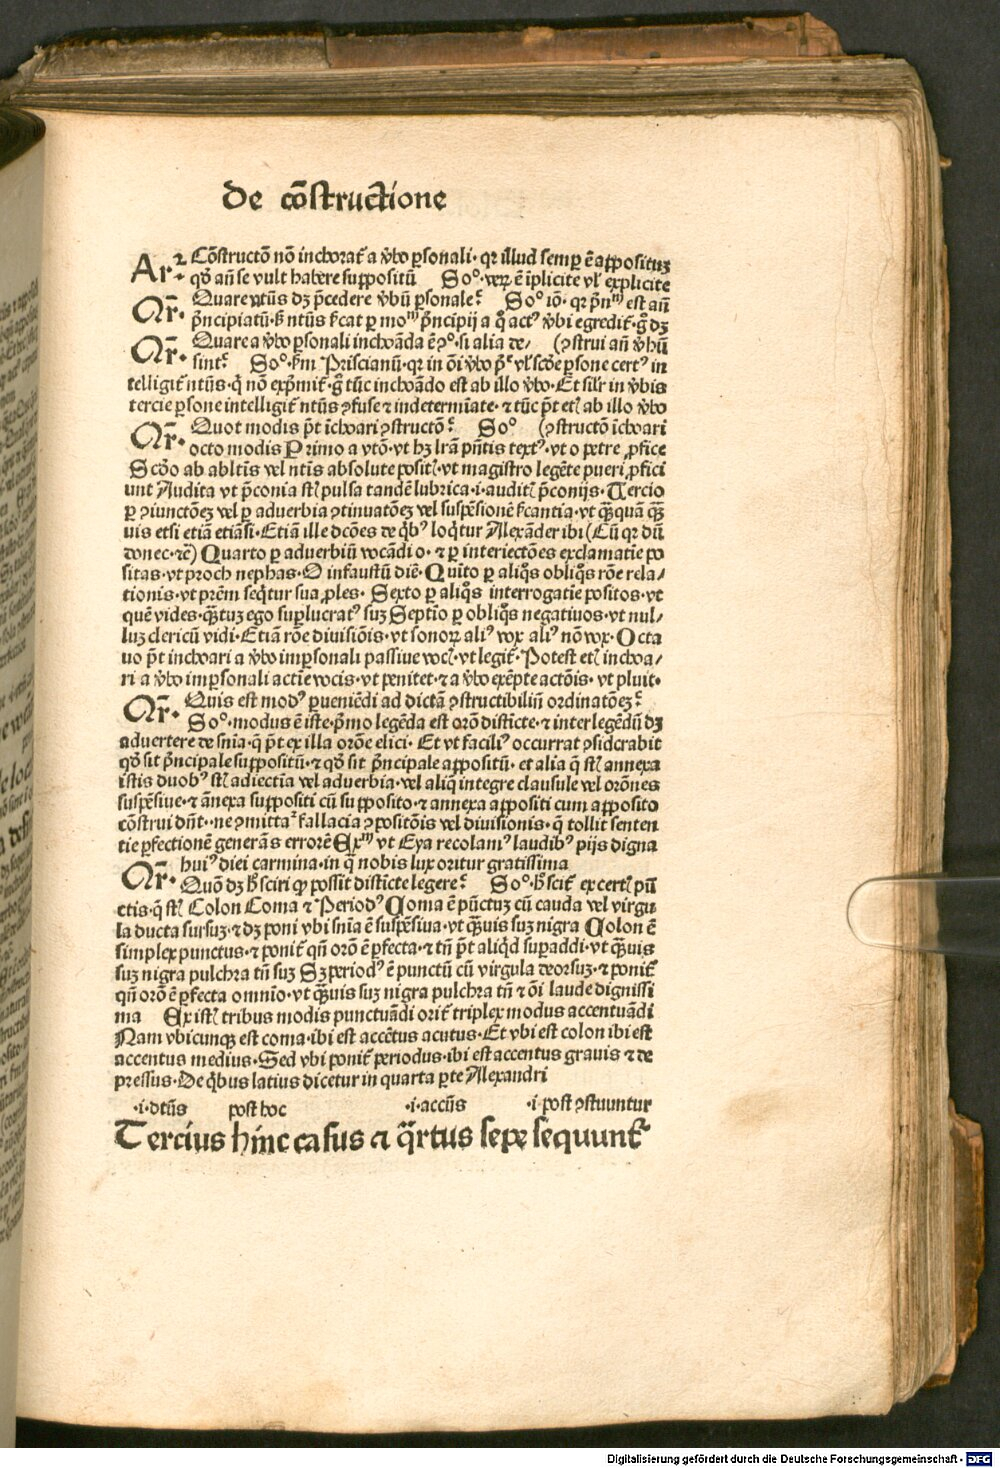 De cōstructione
Ar² Cōstructō nō inchorat᷑ a v̓bo ꝑsonali· qꝛ illud semꝑ ē apposituꝫ
qḋ añ se vult habere suppositū Soº· veꝝ ē īplicite vl̓ explicite
Qr̄· Quare ntūs dꝫ p̄cedere v̓bū ꝑsonale? Soº iō· qꝛ p̄nᵐ est añ
p̄ncipiatū· ꝫ ntūs ẜcat ꝑ moᵐ p̄ncipij a q̊ actꝰ v̓bi egredit᷑· g̊ dꝫ
Qr̄· Quare a v̓bo ꝑsonali inchoāda ē ꝯº· si alia de/ (ꝯstrui añ v̓bū
sint? Soº· ẜm Priscianū· qꝛ in oī v̓bo pͤ vl̓ scḋe ꝑsone certꝰ in
telligit᷑ ntūs· q̄ nō exp̄mit᷑· g̊ tūc inchoādo est ab illo v̓bo· Et silr̄ in v̓bis
tercie ꝑsone intelligit᷑ ntūs ꝯfuse ⁊ indetermīate· ⁊ tūc p̄t etꝭ ab illo v̓bo
Qr̄· Quot modis p̄t īchoari ꝯstructō? Soº (ꝯstructō īchoari
octo modis Primo a vtō· vt hꝫ lr̄am pn̄tis textꝰ· vt o petre ꝓfice
Scḋo ab abltīs vel ntīs absolute positꝭ· vt magistro legēte pueri ꝓfici
unt Audita vt p̄conia stꝭ pulsa tandē lubrica ·i· auditꝭ p̄conijs· Tercio
ꝑ ꝯiunctōeꝫ vel ꝑ aduerbia ꝯtinuatōeꝫ vel suspēsionē ẜcantia· vt q̄ꝫquā q̄ꝫ
uis etsi etiā etiāsi· Etiā ille dcōes de q̊bꝰ loq̊tur Alexāder ibi (Cū qꝛ dū
donec· ⁊ē) Quarto ꝑ aduerbiū vocādi o· ⁊ ꝑ interiectōes exclamatīe po
sitas· vt proch nephas· O infaustū diē· Quīto ꝑ aliq̊s obliq̊s rōe rela/
tionis· vt pr̄em seq̊tur sua ꝓles· Sexto ꝑ aliq̊s interrogatīe positos· vt
quē vides· q̄ꝫtuꝫ ego suꝑlucratꝰ suꝫ Septīo ꝑ obliq̊s negatiuos· vt nul/
luꝫ clericū vidi· Etiā rōe diuisiōis· vt sonoꝝ aliꝰ vox aliꝰ nō vox· Octa
uo p̄t inchoari a v̓bo imꝑsonali passiue vocꝭ· vt legit᷑· Potest etꝭ inchoa/
ri a v̓bo imꝑsonali actīe vocis· vt penitet· ⁊ a v̓bo exēpte actōis· vt pluit·
Qr̄· Quis est modꝰ ꝑueniēdi ad dictā ꝯstructibiliū ordinatōeꝫ?
Soº· modus ē iste· p̄mo legēda est orō distīcte· ⁊ interlegēdū dꝫ
aduertere de sn̄ia· q̄ p̄t ex illa orōe elici· Et vt faciliꝰ occurrat ꝯsiderabit
qḋ sit p̄ncipale suppositū· ⁊ qḋ sit p̄ncipale appositū· et alia q̄ stꝭ annexa
istis duobꝰ stꝭ adiectīa vel aduerbia· vel aliq̄ integre clausule vel orōnes
suspēsiue· ⁊ ānexa suppositi cū supposito· ⁊ annexa appositi cum apposito
cōstrui dn̄t· ne ꝯmittat᷑ fallacia ꝯpositōis vel diuisionis· q̄ tollit senten
tie ꝑfectionē generās errorē Exᵐ vt Eya recolamꝰ laudibꝰ pijs digna
huiꝰ diei carmina· in q̄ nobis lux oritur gratissima
Qr̄· Quō dꝫ hͦ sciri qͦ possit distīcte legere? Soº· hͦ scit᷑ ex certꝭ pū
ctis· q̄ stꝭ Colon Coma ⁊ Periodꝰ Coma ē pūctuꝫ cū cauda vel virgu
la ducta sursuꝫ· ⁊ dꝫ poni vbi sn̄ia ē suspēsiua· vt q̄ꝫuis suꝫ nigra Colon ē
simplex punctus· ⁊ ponit᷑ qn̄ orō ē ꝑfecta· ⁊ tn̄ p̄t aliq̊d suꝑaddi· vt q̄ꝫuis
suꝫ nigra pulchra tn̄ suꝫ Sꝫ periodꝰ ē punctū cū virgula deorsuꝫ· ⁊ ponit᷑
qn̄ orō ē ꝑfecta omnīo· vt q̄ꝫuis suꝫ nigra pulchra tn̄ ⁊ oī laude dignissi
ma Ex istꝭ tribus modis punctuādi orit᷑ triplex modus accentuādi
Nam vbicunqꝫ est coma· ibi est accētus acutus· Et vbi est colon ibi est
accentus medius· Sed vbi ponit᷑ periodus· ibi est accentus grauis ⁊ de
pressus· De q̊bus latius dicetur in quarta ꝑte Alexandri
·i· dtūs post hoc ·i· accūs ·i· post ꝯstuuntur
Tercius hinc casus ⁊ q̄rtus sepe sequunt᷑
Digitalisierung gefördert durch die Deutsche Forschungsgemeinschaft - DFG